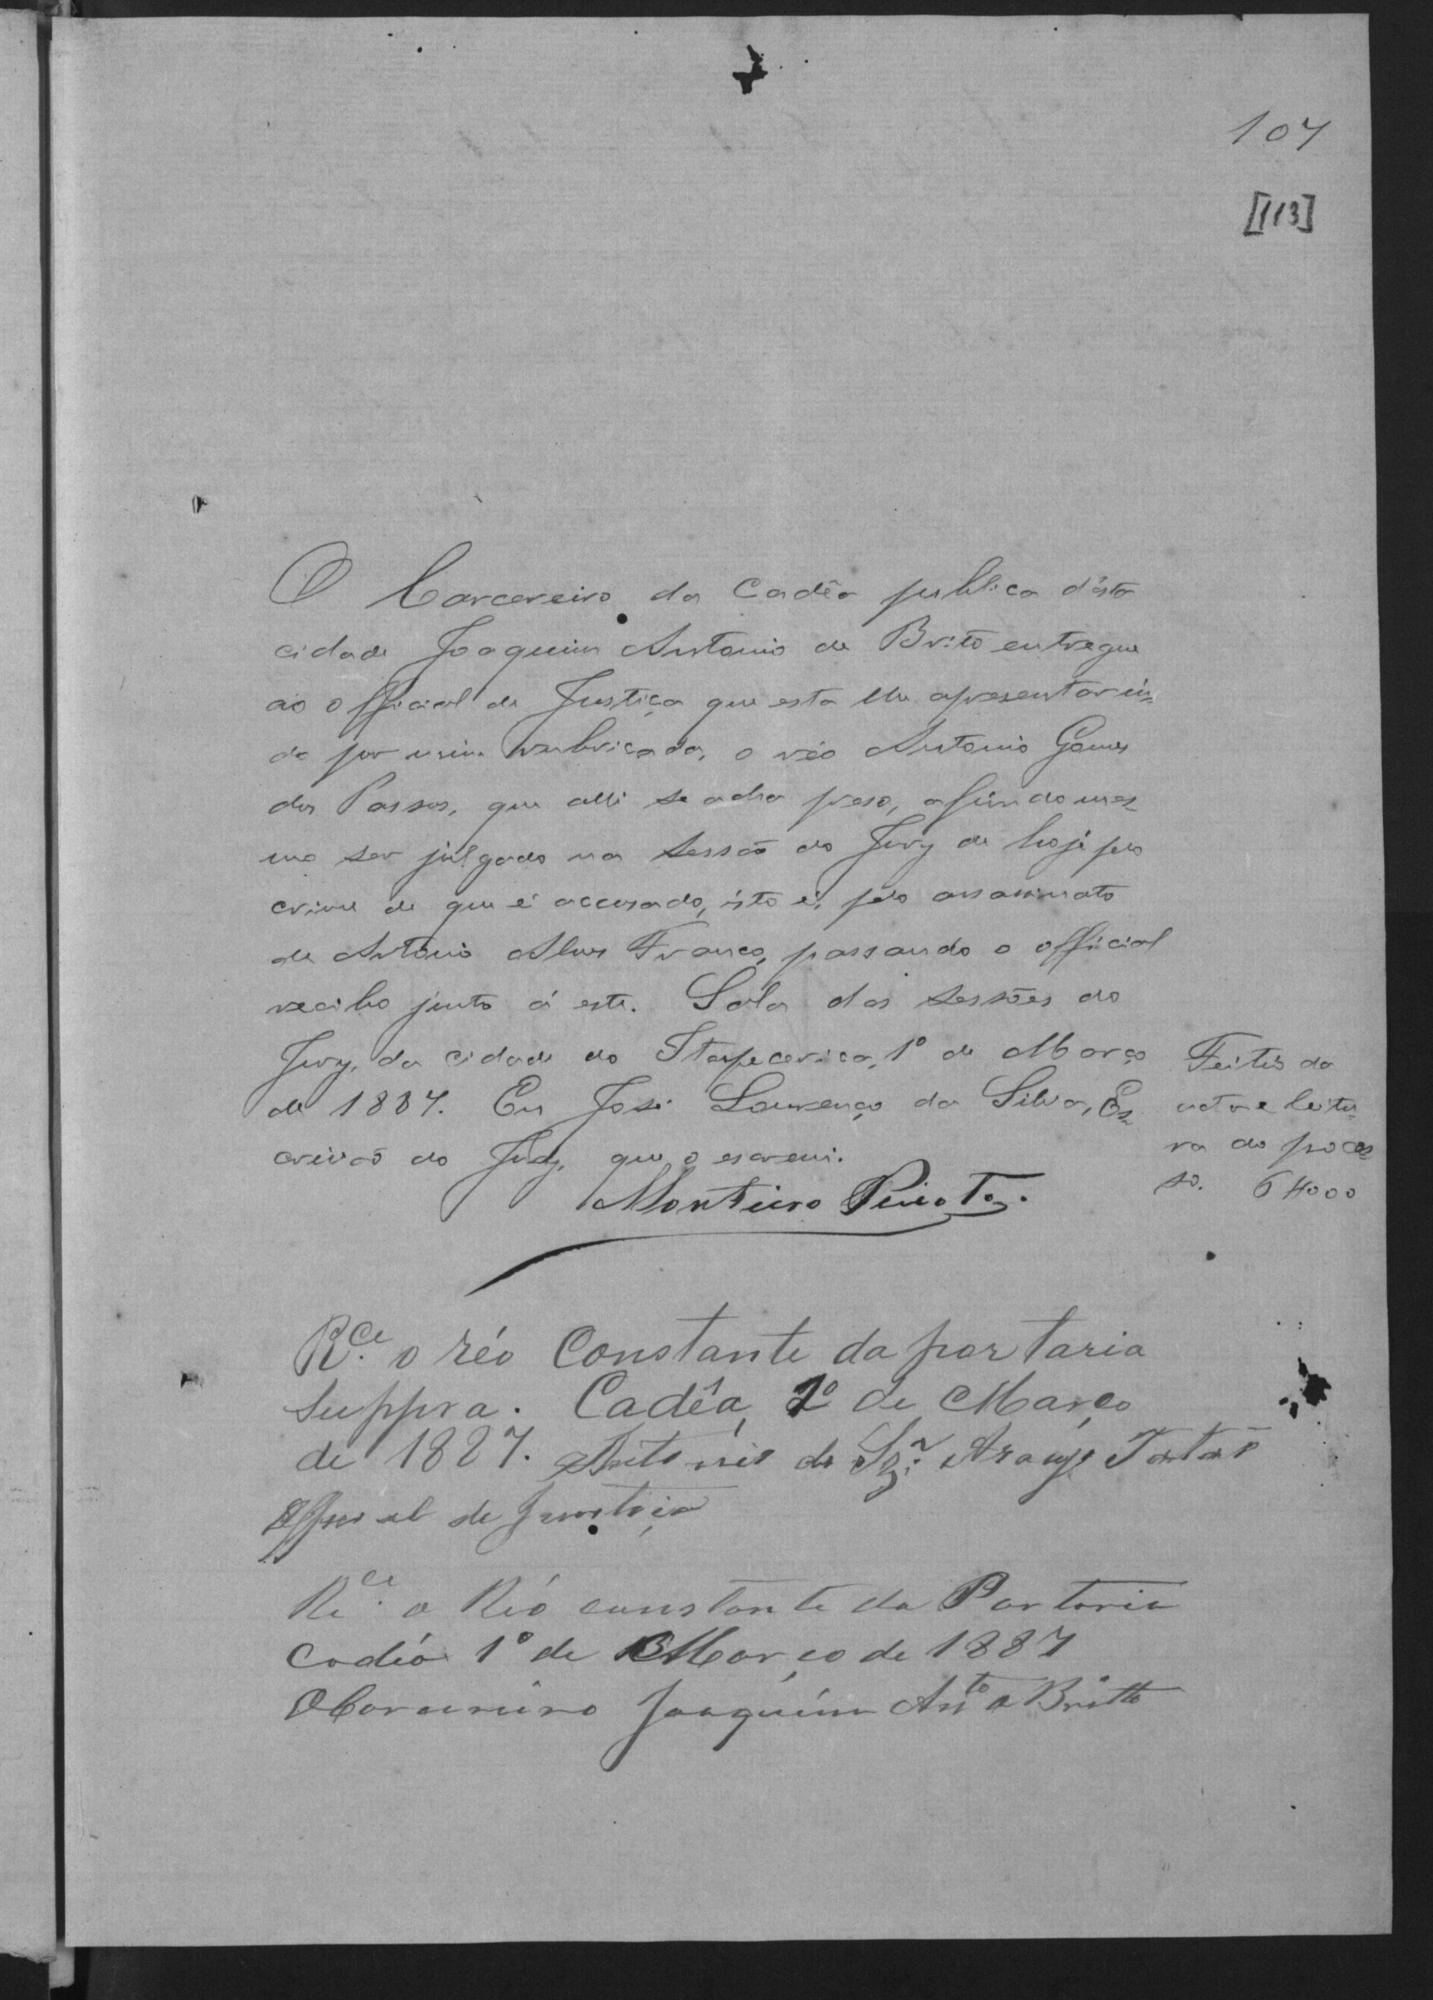 107
[113]
O Carcereiro da Cadêa publica d'esta
cidade Joaquim Antonio de Brito entregue
ao official de Justiça que esta lhe apresentar in-
do por mim rubricada, o réo Antonio Gomes
dos Passos, que alli se acha preso, afim do mes-
mo ser julgado na sessão do Jury de hoje pelo
crime de que é accusado, isto é, pelo assassinato
de Antonio Alves Franco, passando o official
recibo junto á este. Sala das sessões do
Jury, da cidade do Itapecerica, 1º de Março
de 1887. Eu José Lourenço da Silva, Es-
crivão do Jury, que o escrevi.
Monteiro Peixoto.
Feitio da
acta e leitu-
ra do proces-
so. 6$000
R.ce o réo Constante da portaria
Suppra. Cadêa, 1º de Março
de 1887. Antonio de Sz.ª Araujo
Official de Justiça
Re.ce o Réo constante da Portaria
Cadéa 1º de Março de 1887
O Carcereiro Joaquim Ant.º Britto